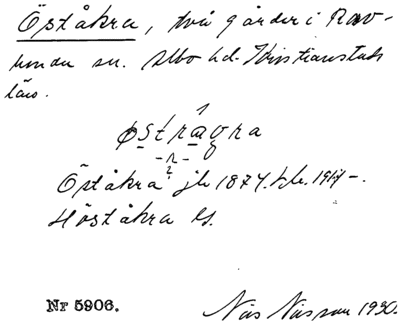 Öståkra, två gårder i Rav-
lunda sn. Albo hd. Kristianstads
län.
østragra
-n-
Öståkra jb 1874. Hfl. 1917-.
Höståkra ls.
Nr 5906.
Nils Nilsson 1930.